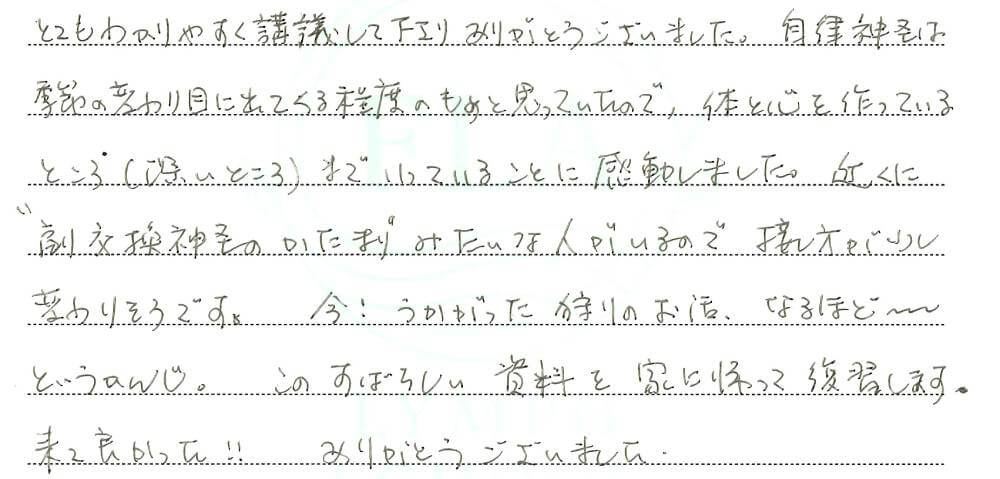 とてもわかりやすく講議して下さりありがとうございました。 自律神経は
季節の変わり目に出てくる程度のものと思っていたので、体と心を作っている
ところ(深いところ)までいっていることに感動しました。 近くに
"副交換神経のかたまり"みたいな人がいるので 接し方が少し
変わりそうです。 今! うかがった 狩りのお話、なるほど〜〜
というかんじ。 このすばらしい 資料を 家に帰って 復習します。
来て良かった!! ありがとうございました.